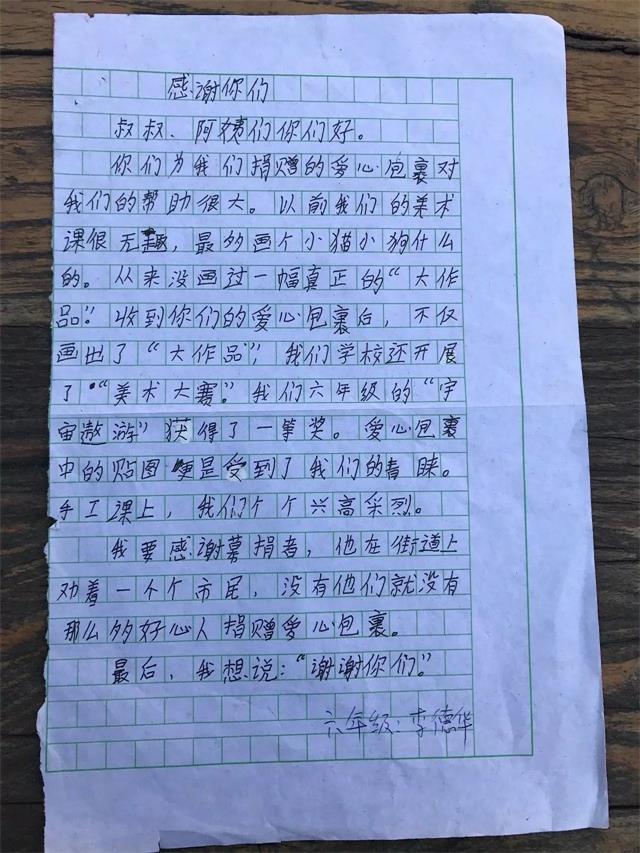 感谢你们
叔叔、阿姨们你们好。
你们为我们捐赠的爱心包裹对
我们的帮助很大。以前我们的美术
课很无趣，最多画个小猫小狗什么
的。从来没画过一幅真正的“大作
品”。收到你们的爱心包裹后，不仅
画出了“大作品”，我们学校还开展
了“美术大赛”。我们六年级的“宇
宙遨游”获得了一等奖。爱心包裹
中的贴图更是受到了我们的青睐。
手工课上，我们个个兴高采烈。
我要感谢募捐者，他在街道上
劝着一个个市民，没有他们就没有
那么多好心人捐赠爱心包裹。
最后，我想说：“谢谢你们。”
六年级：李德华